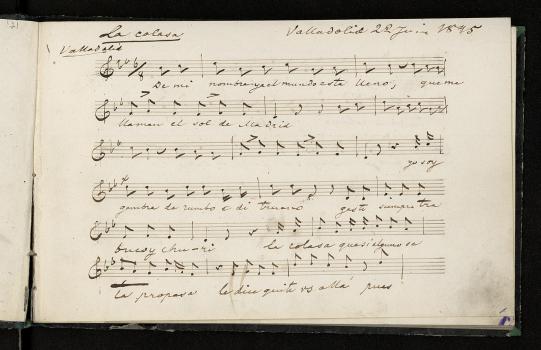 La colasa Valladolid 22 Juin 1845
Valladolid
De mi nombre ya el mundo esta lleno, que me
llaman el sol de Madrid
yo soy
gembra de rumbo i di trueno geste siempre tra
buco y chu-ri la colasa quasi alguno se
ta propasa le dice quite vs alla pues